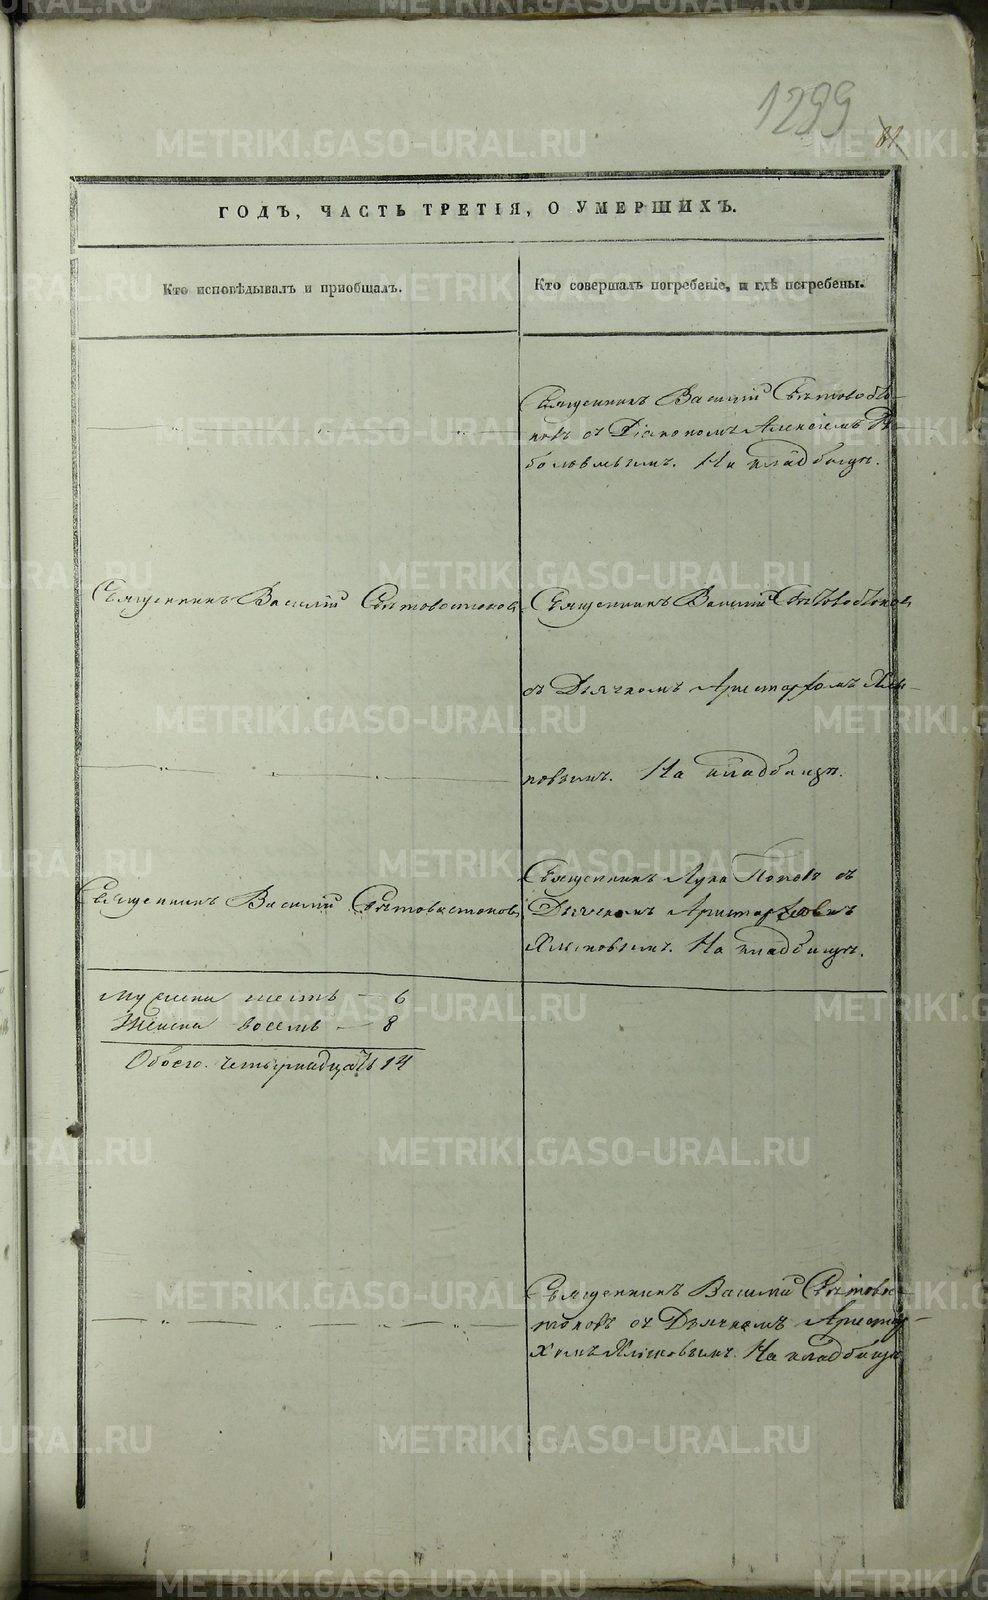 1299
81
ГОДЪ, ЧАСТЬ ТРЕТІЯ, О УМЕРШИХЪ.
Кто исповѣдывалъ и пріобщалъ.
Кто совершалъ погребеніе, и гдѣ погребены.
Священникъ Василій Свѣтовосто-
ковъ съ Діакономъ Алексіемъ
На кладбищѣ.
Священникъ Василій Свѣтовостоковъ
Священникъ Василій Свѣтовостоковъ
съ Дьячкомъ Аристархомъ
На кладбищѣ.
Священникъ Василій Свѣтовостоковъ
Священникъ Лука Поповъ съ
Дьячкомъ Аристархомъ
На кладбищѣ.
Мужеска шесть — 6
Женска восемь — 8
Обоего. четырнадцать 14
Священникъ Василій Свѣтовос-
токовъ съ Дьячкомъ Аристар-
хомъ На кладбищѣ
METRIKI.GASO-URAL.RU